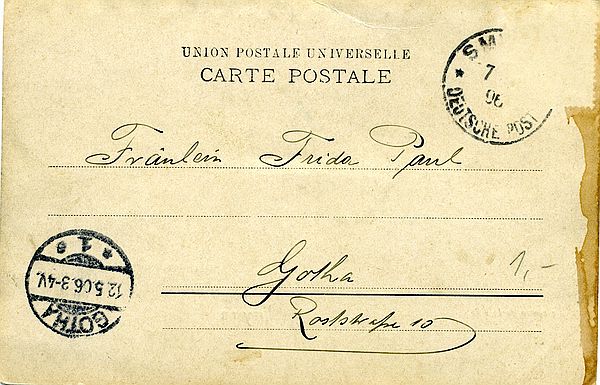 UNION POSTALE UNIVERSELLE
CARTE POSTALE
SM
7
06
* DEUTSCHE POST
Fräulein Frida Paul
Gotha
1,-
10
GOTHA
12.5.06.3-4V.
* 1 e